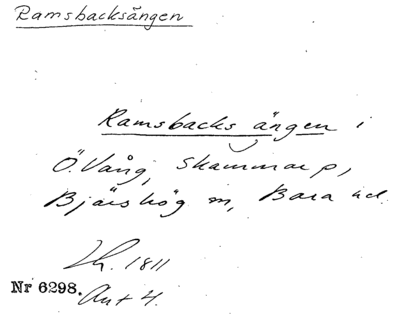 Ramsbacksängen
Ramsbacks ängen i
Ö. Vång, Skammarp,
Bjärshög m, Bara hd.
Lh. 1811
Nr 6298. Ant 4.